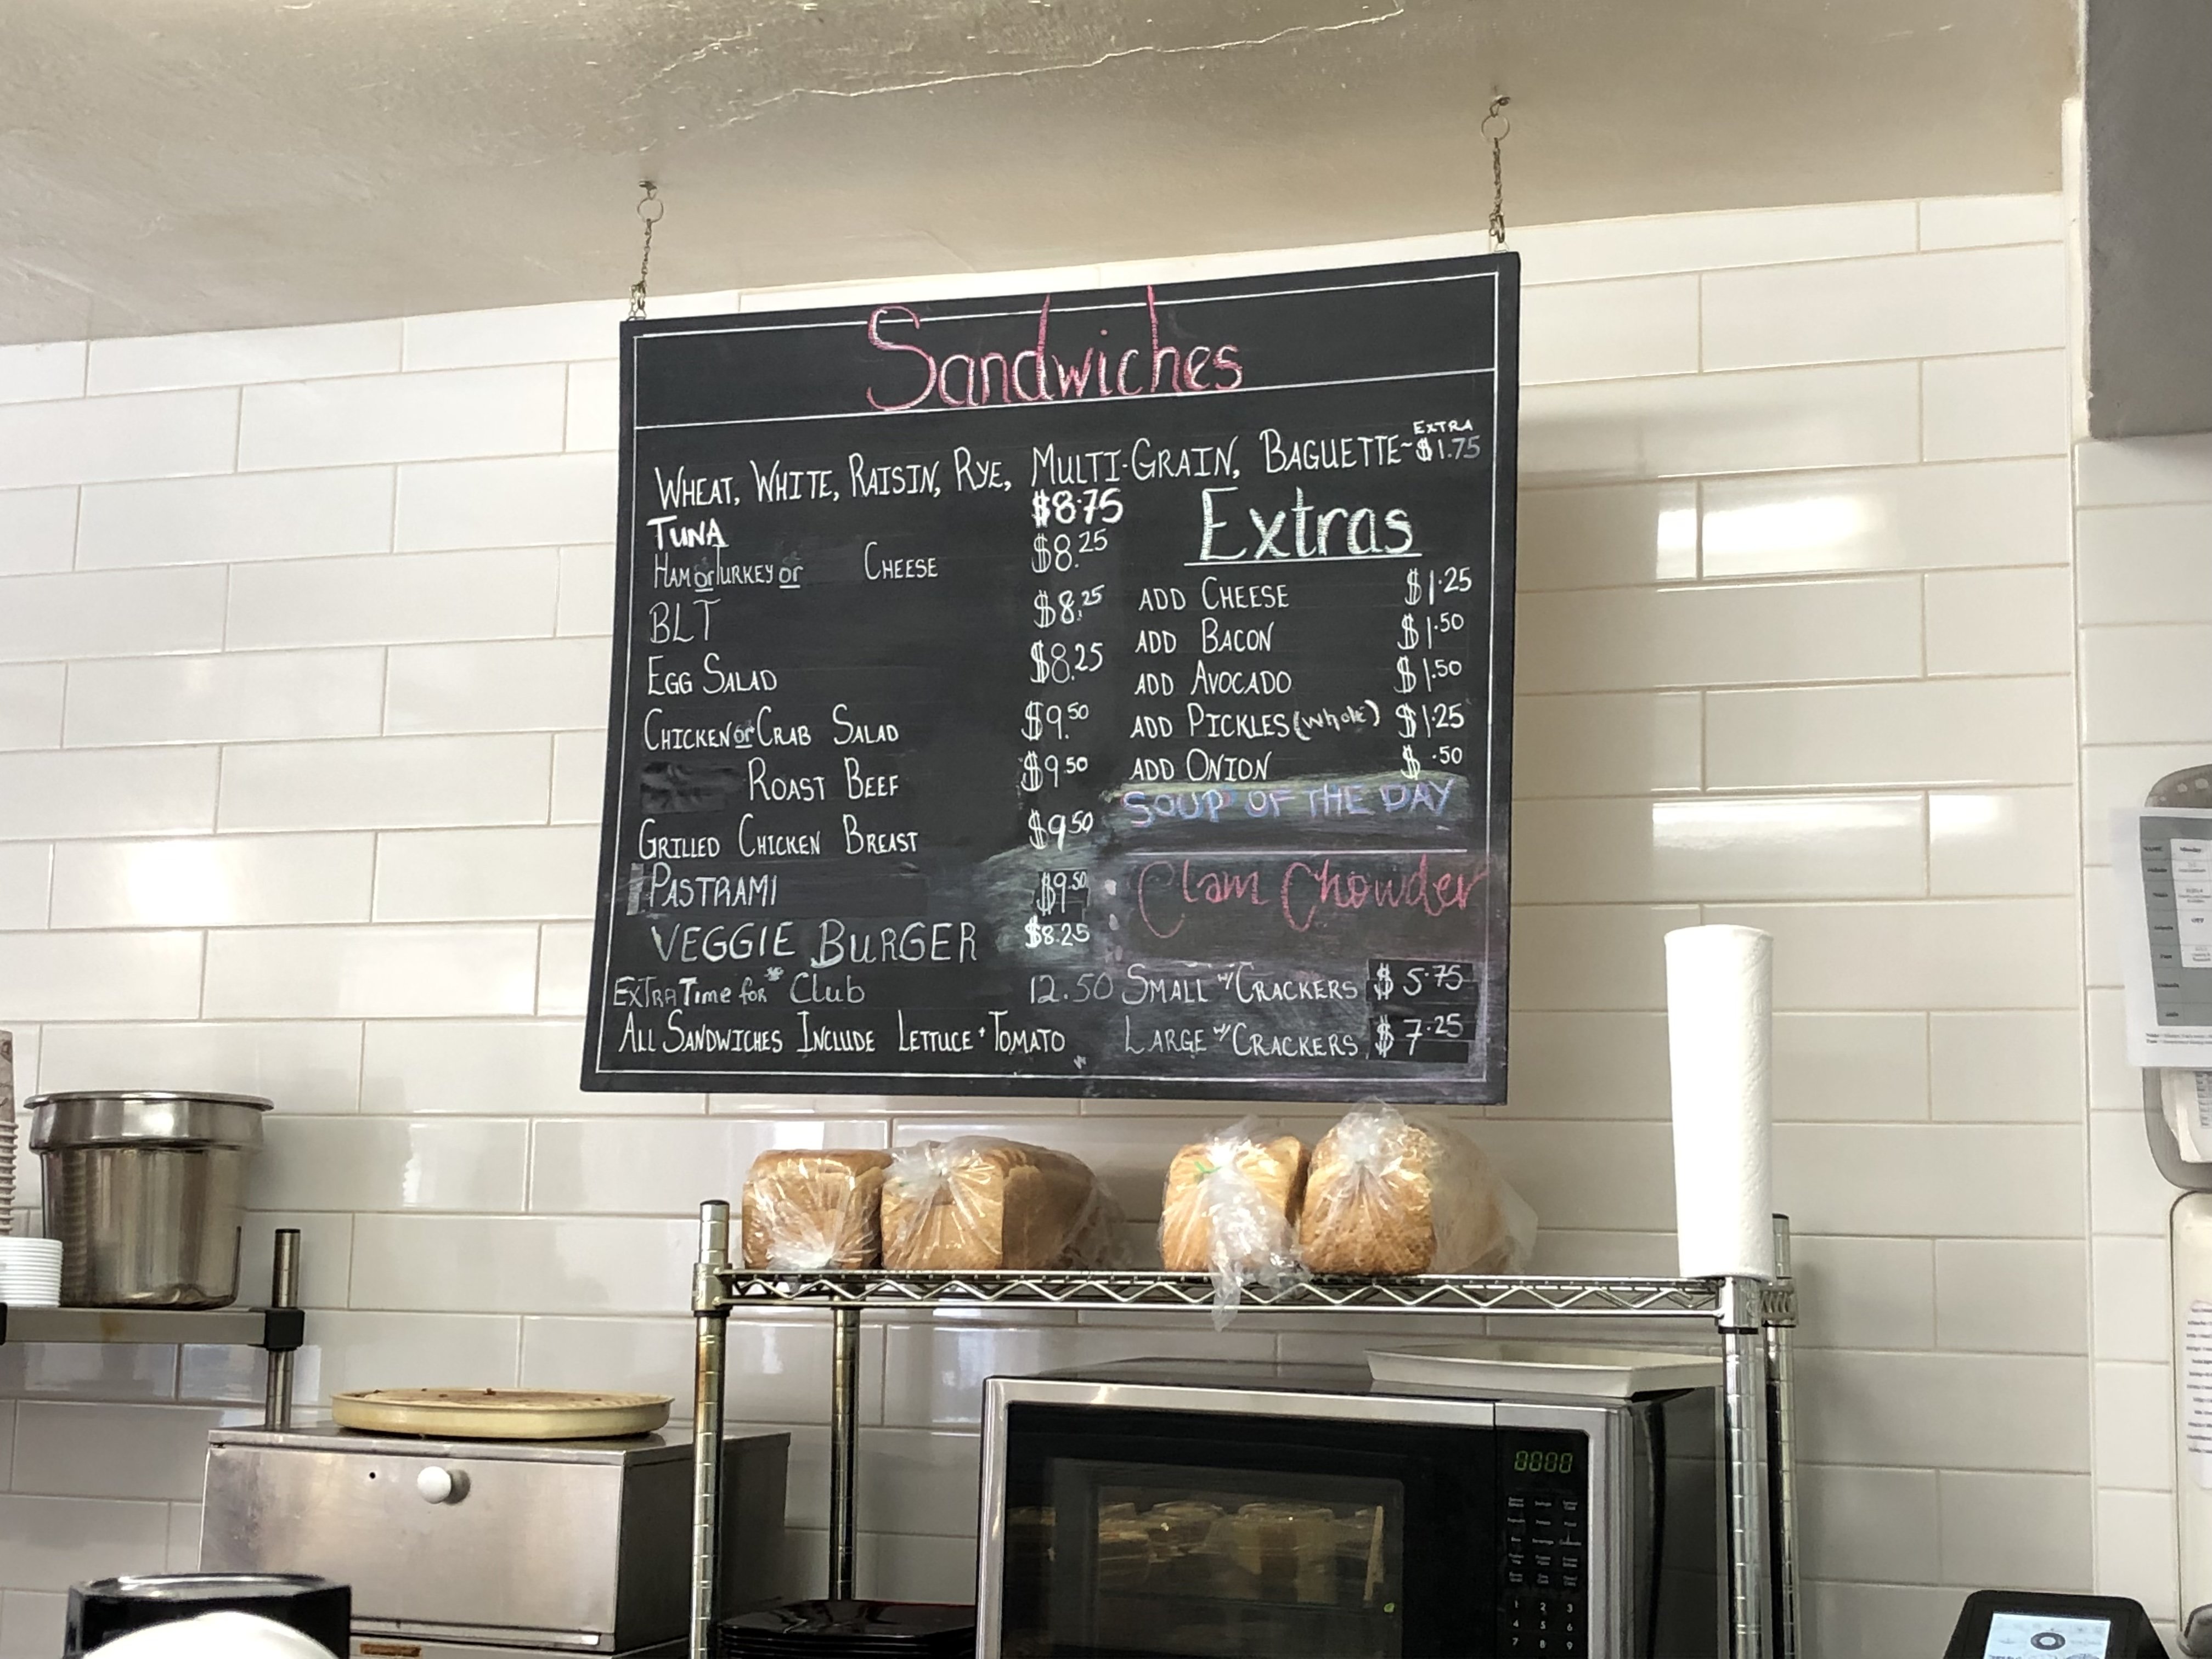 Sandwiches
EXTRA
WHEAT, WHITE, RAISIN, RYE, MULTI-GRAIN, BAGUETTE~$1.75
TUNA $8.75
HAM or TURKEY or CHEESE $8.25
BLT $8.25
EGG SALAD $8.25
CHICKEN or CRAB SALAD $9.50
ROAST BEEF $9.50
GRILLED CHICKEN BREAST $9.50
PASTRAMI $9.50
VEGGIE BURGER $8.25
EXTRA Time for* Club 12.50
ALL SANDWICHES INCLUDE LETTUCE + TOMATO
Extras
ADD CHEESE $1.25
ADD BACON $1.50
ADD AVOCADO $1.50
ADD PICKLES (whole) $1.25
ADD ONION $.50
SOUP OF THE DAY
Clam Chowder
SMALL w/ CRACKERS $5.75
LARGE w/ CRACKERS $7.25
1 2 3
4 5 6
7 8 9